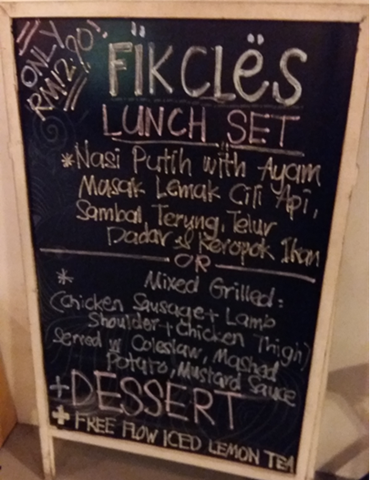 ONLY
RM12.90!
FÏKCLËS
LUNCH SET
*Nasi Putih with Ayam
Masak Lemak Cili Api,
Sambal Terung, Telur
Dadar & Keropok Ikan
OR
* Mixed Grilled:
(Chicken Sausage + Lamb
Shoulder + Chicken Thigh)
Served w/ Coleslaw, Mashed
Potato, Mustard Sauce
+DESSERT
+ FREE FLOW ICED LEMON TEA